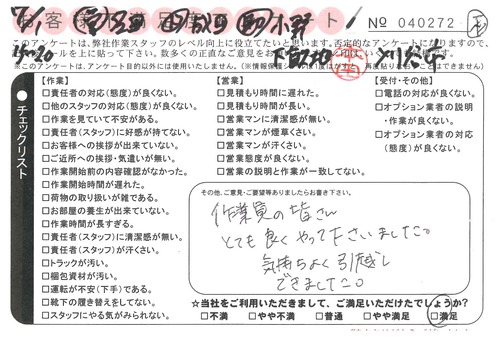 お客様
ト
№ 040272
このアンケートは、弊社作業スタッフのレベル向上に役立てたいと思います。否定的なアンケートになりますので、
シールを上に貼って下さい。
※このアンケートは、アンケート目的以外には使用いたしません。
チェックリスト
【作業】
□責任者の対応(態度)が良くない。
□他のスタッフの対応(態度)が良くない。
□作業を見ていて不安がある。
□責任者(スタッフ)に好感が持てない。
□お客様への挨拶が出来ていない。
□ご近所への挨拶・気遣いが無い。
□作業開始前の内容確認がなかった。
□作業開始時間が遅れた。
□荷物の取り扱いが雑である。
□お部屋の養生が出来ていない。
□作業時間が長すぎる。
□責任者(スタッフ)に清潔感が無い。
□責任者(スタッフ)が汗くさい。
□トラックが汚い。
□梱包資材が汚い。
□運転が不安(下手)である。
□靴下の履き替えをしてない。
□スタッフにやる気がみられない。
【営業】
□見積もり時間に遅れた。
□見積もり時間が長い。
□営業マンに清潔感が無い。
□営業マンが煙草くさい。
□営業マンが汗くさい。
□営業態度が良くない。
□営業の説明と作業が一致してない。
【受付・その他】
□電話の対応が良くない。
□オプション業者の説明
・作業が良くない。
□オプション業者の対応
(態度)が良くない。
その他、ご意見・ご要望等ありましたらお書き下さい。
作業員の皆さん
とても良くやって下さいました。
気持ちよく引越し
できました。
☆当社をご利用いただきまして、ご満足いただけたでしょうか?
□不満 □やや不満 □普通 □やや満足 □満足